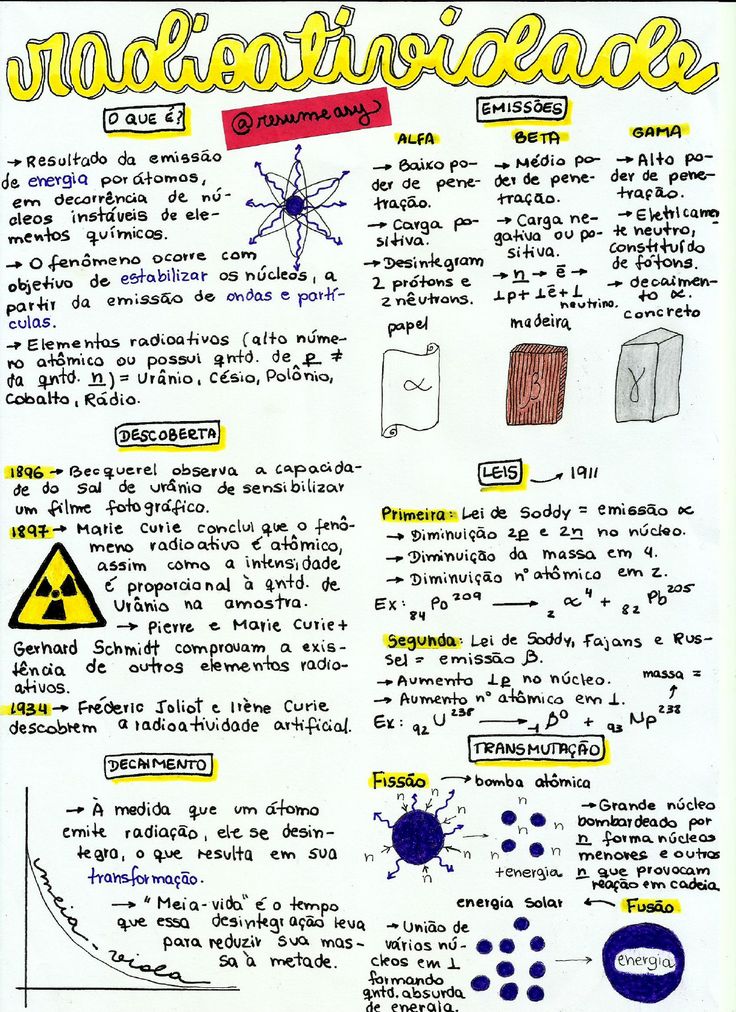 radioatividade
O QUE É?
@resumeasy
→ Resultado da emissão
de energia por átomos,
em decorrência de nú-
cleos instáveis de ele-
mentos químicos.
→ O fenômeno ocorre com
objetivo de estabilizar os núcleos, a
partir da emissão de ondas e partí-
culas.
→ Elementos radioativos (alto núme-
ro atômico ou possui qntd. de p ≠
da qntd. n) = Urânio, Césio, Polônio,
Cobalto, Rádio.
EMISSÕES
ALFA
→ Baixo po-
der de pene-
tração.
→ Carga po-
sitiva.
→ Desintegram
2 prótons e
2 nêutrons.
papel
α
BETA
→ Médio po-
der de pene-
tração.
→ Carga ne-
gativa ou po-
sitiva.
→ n → ē →
1p + 1ē + 1
neutrino.
madeira
β
GAMA
→ Alto po-
der de pene-
tração.
→ Eletricamen
te neutro,
constituído
de fótons.
→ decaimen-
to α.
concreto
γ
DESCOBERTA
1896 → Becquerel observa a capacida-
de do sal de urânio de sensibilizar
um filme fotográfico.
1897 → Marie Curie conclui que o fenô-
meno radioativo é atômico,
assim como a intensidade
é proporcional à qntd. de
Urânio na amostra.
→ Pierre e Marie Curie +
Gerhard Schmidt comprovam a exis-
tência de outros elementos radio-
ativos.
1934 → Fréderic Joliot e Irène Curie
descobrem a radioatividade artificial.
LEIS → 1911
Primeira: Lei de Soddy = emissão α
→ Diminuição 2p e 2n no núcleo.
→ Diminuição da massa em 4.
→ Diminuição nº atômico em 2.
Ex: 84 Po 209 → 2 α 4 + 82 Pb 205
Segunda: Lei de Soddy, Fajans e Rus-
sel = emissão β.
→ Aumento 1p no núcleo.
massa =
→ Aumento nº atômico em 1.
Ex: 92 U 238 → -1 β 0 + 93 Np 238
DECAIMENTO
→ À medida que um átomo
emite radiação, ele se desin-
tegra, o que resulta em sua
transformação.
→ "Meia-vida" é o tempo
que essa desintegração leva
para reduzir sua mas-
sa à metade.
meia-vida
TRANSMUTAÇÃO
Fissão → bomba atômica
n
n
n
n
n
n
n
n
n
n
+energia
→ Grande núcleo
bombardeado por
n forma núcleos
menores e outros
n que provocam
reação em cadeia
energia solar ← Fusão
→ União de
vários nú-
cleos em 1
formando
qntd. absurda
de energia.
energia